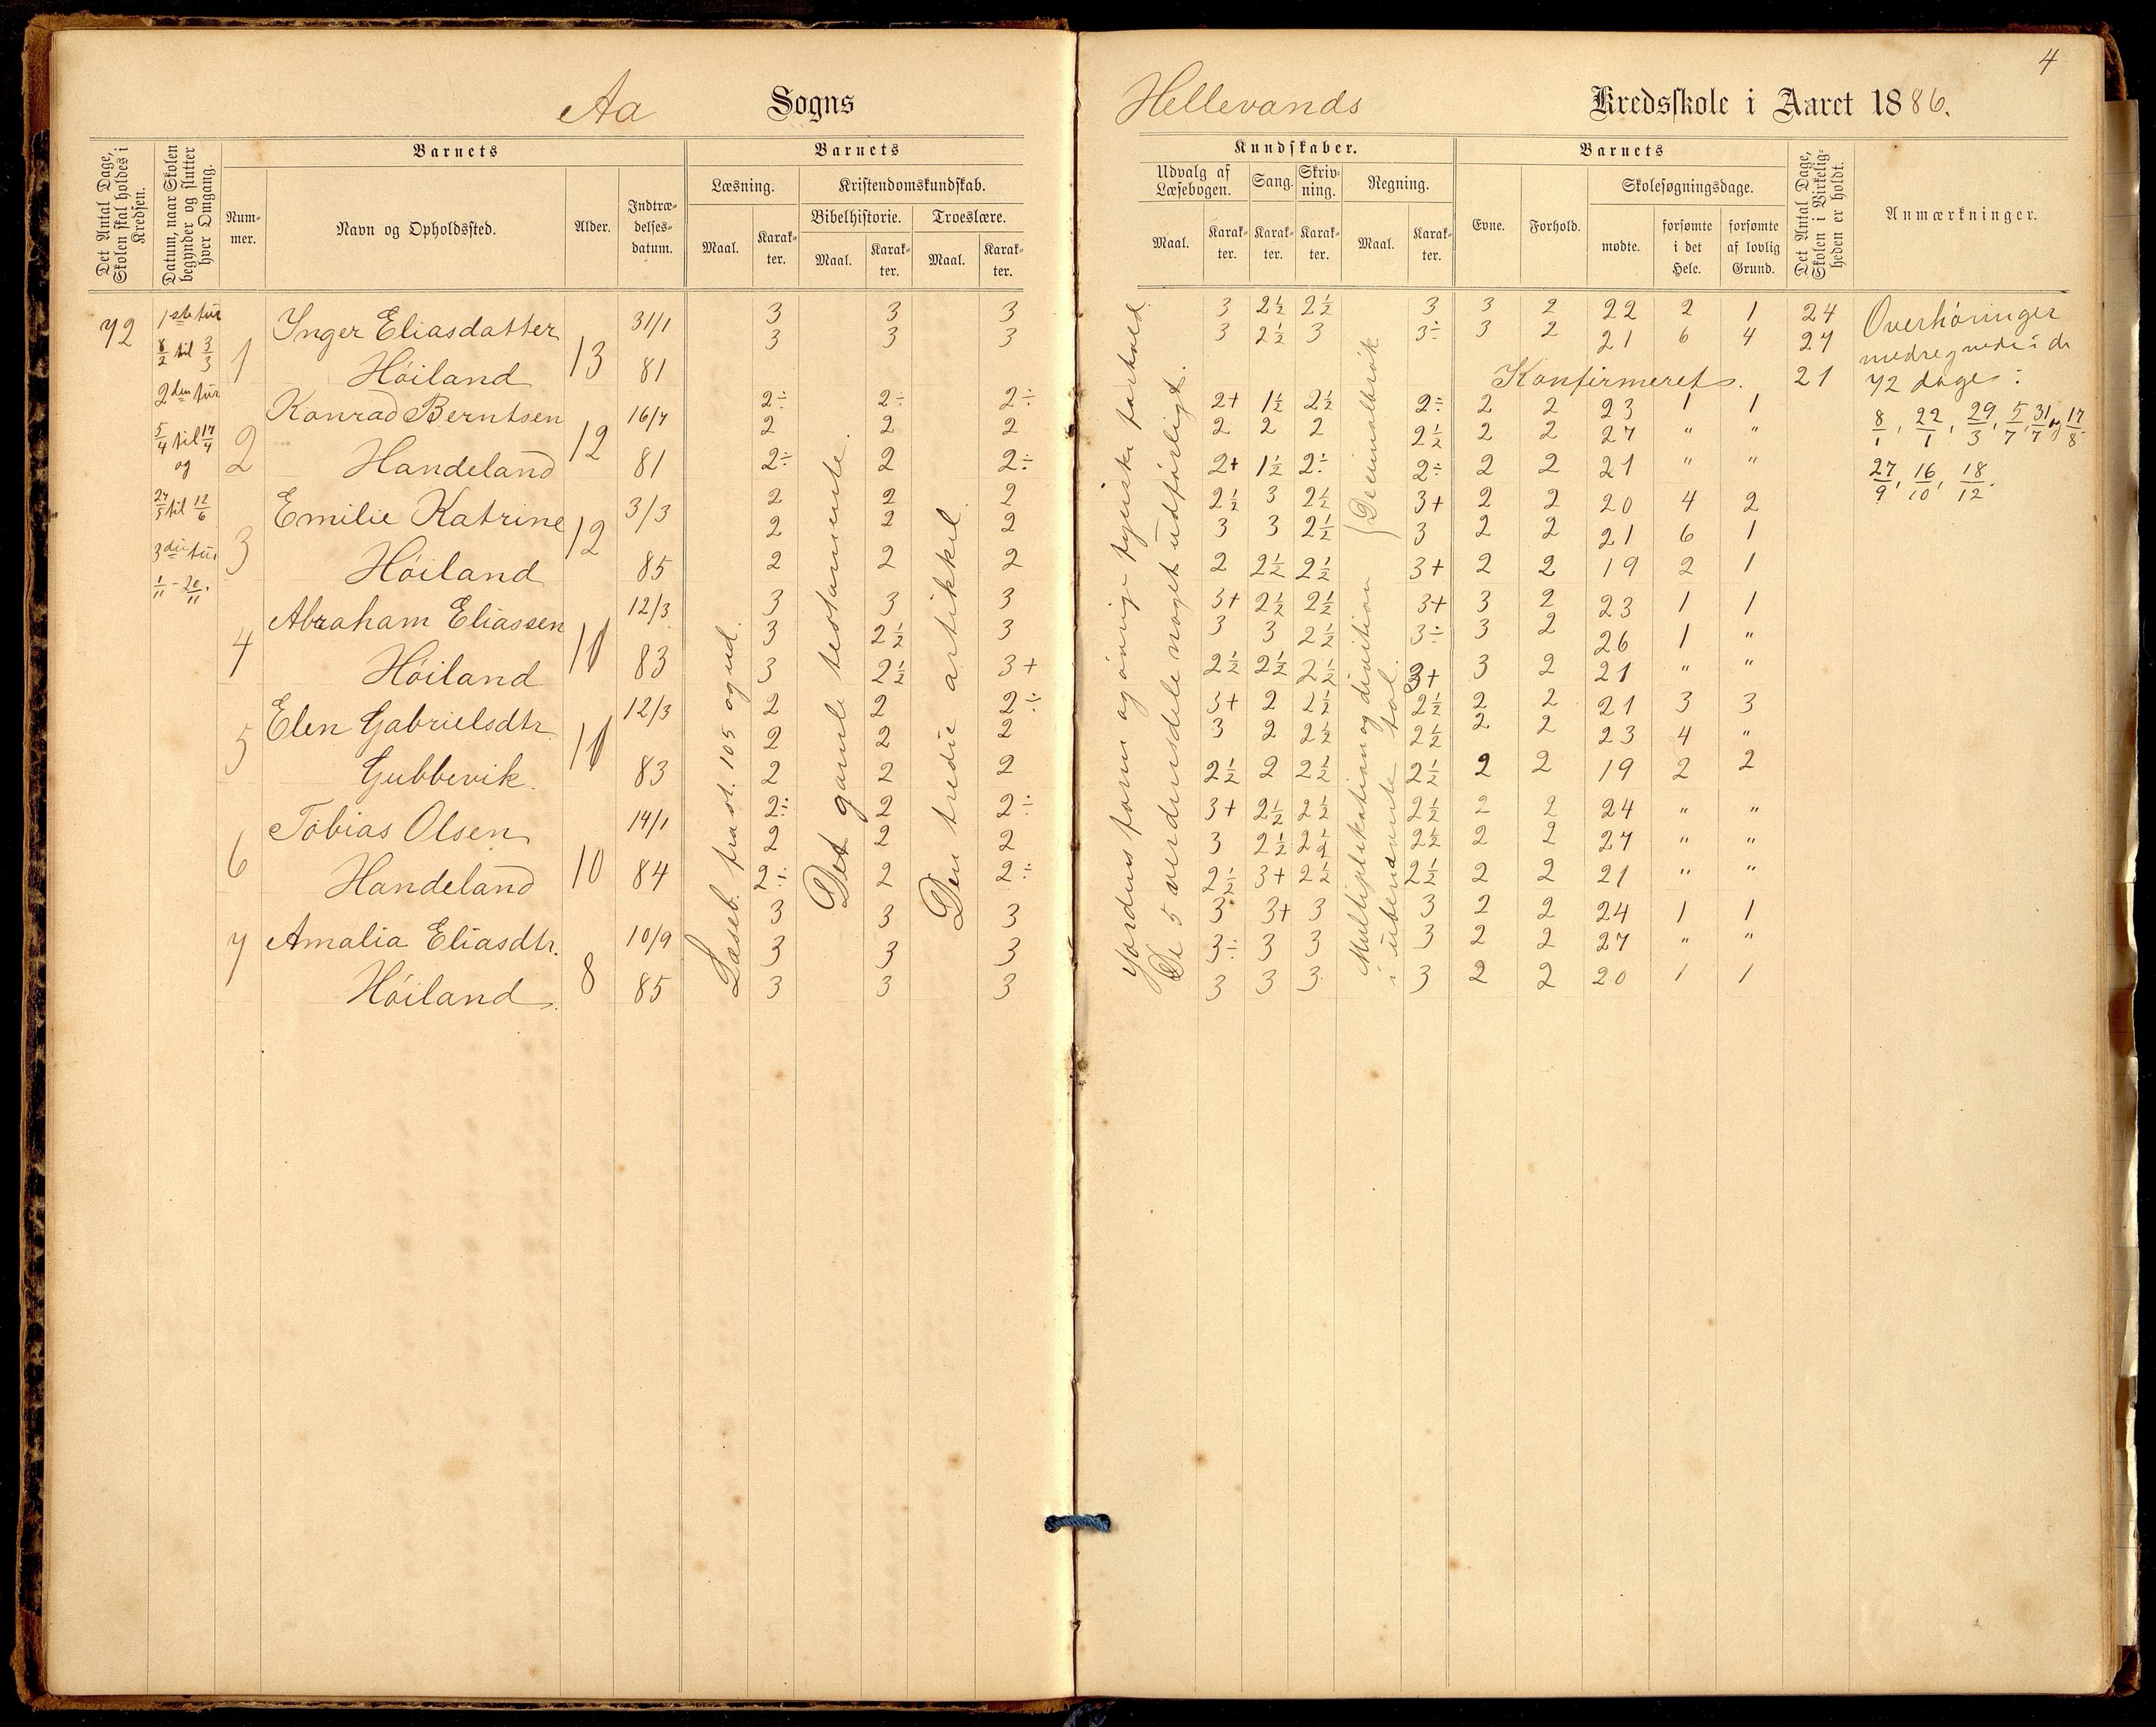 4
Aa Sogns
Hellevands Kredsskole i Aaret 1886.
Det Antal Dage, Skolen skal holdes i Kredsen.
Datum, naar Skolen begynder og slutter hver Omgang.
Barnets
Num-
mer.
Navn og Opholdssted.
Alder.
Indtræ-
delses-
datum.
Barnets
Læsning.
Maal. Karak-
ter.
Kristendomskundskab.
Bibelhistorie. Troeslære.
Maal. Karak-
ter. Maal. Karak-
ter.
Kundskaber.
Udvalg af
Læsebogen. Sang. Skriv-
ning. Regning.
Maal. Karak-
ter. Karak-
ter. Karak-
ter. Maal. Karak-
ter.
Barnets
Evne. Forhold.
Skolesøgningsdage.
mødte. forsømte
i det
Hele. forsømte
af lovlig
Grund.
Det Antal Dage, Skolen i Virkelig-
heden er holdt.
Anmærkninger.
72
1ste tur
8/2 til 3/3
2den tur
5/4 til 17/4
og
24/5 til 12/6
3die tur
1/11 - 20/11.
1 Inger Eliasdatter 13 31/1
Höiland 81
2 Konrad Berntsen 12 16/7
Handeland 81
3 Emilie Katrine 12 3/3
Höiland 85
4 Abraham Eliassen 11 12/3
Höiland 83
5 Elen Gabrielsdtr 11 12/3
Gubbevik. 83
6 Tobias Olsen 10 14/1
Handeland 84
7 Amalia Eliasdtr. 8 10/9
Höiland. 85
Læseb. fra st. 105 og ud.
Det gamle testamente.
Den tredie artikkel.
Jordens form og övrige fysiske forhold.
De 5 verdensdele noget udförligt.
Decimalbrök
Multiplikation og division
i ubenævnte tal.
3 3 3 3 2½ 2½ 3 3 2 22 2 1 24
3 3 3 3 2½ 3 3÷ 3 2 21 6 4 27
Konfirmeret. 21
2÷ 2÷ 2÷ 2+ 1½ 2½ 2÷ 2 2 23 1 1
2 2 2 2 2 2 2½ 2 2 27 " "
2÷ 2 2÷ 2+ 1½ 2÷ 2÷ 2 2 21 " "
2 2 2 2½ 3 2½ 3+ 2 2 20 4 2
2 2 2 3 3 2½ 3 2 2 21 6 1
2 2 2 2 2½ 2½ 3+ 2 2 19 2 1
3 3 3 3+ 2½ 2½ 3+ 3 2 23 1 1
3 2½ 3 3 3 2½ 3÷ 3 2 26 1 "
3 2½ 3+ 2½ 2½ 2½ 3+ 3 2 21 " "
2 2 2÷ 3+ 2 2½ 2½ 2 2 21 3 3
2 2 2 3 2 2½ 2½ 2 2 23 4 "
2 2 2 2½ 2 2½ 2½ 2 2 19 2 2
2÷ 2 2÷ 3+ 2½ 2½ 2½ 2 2 24 " "
2 2 2 3 2½ 2½ 2½ 2 2 27 " "
2÷ 2 2÷ 2½ 3+ 2½ 2½ 2 2 21 " "
3 3 3 3 3+ 3 3 2 2 24 1 1
3 3 3 3÷ 3 3 3 2 2 27 " "
3 3 3 3 3 3 3 2 2 20 1 1
Overhöringer
medregnede i de
72 dage:
8/1, 22/1, 29/3, 5/7, 31/7 og 17/8
27/9, 16/10, 18/12.